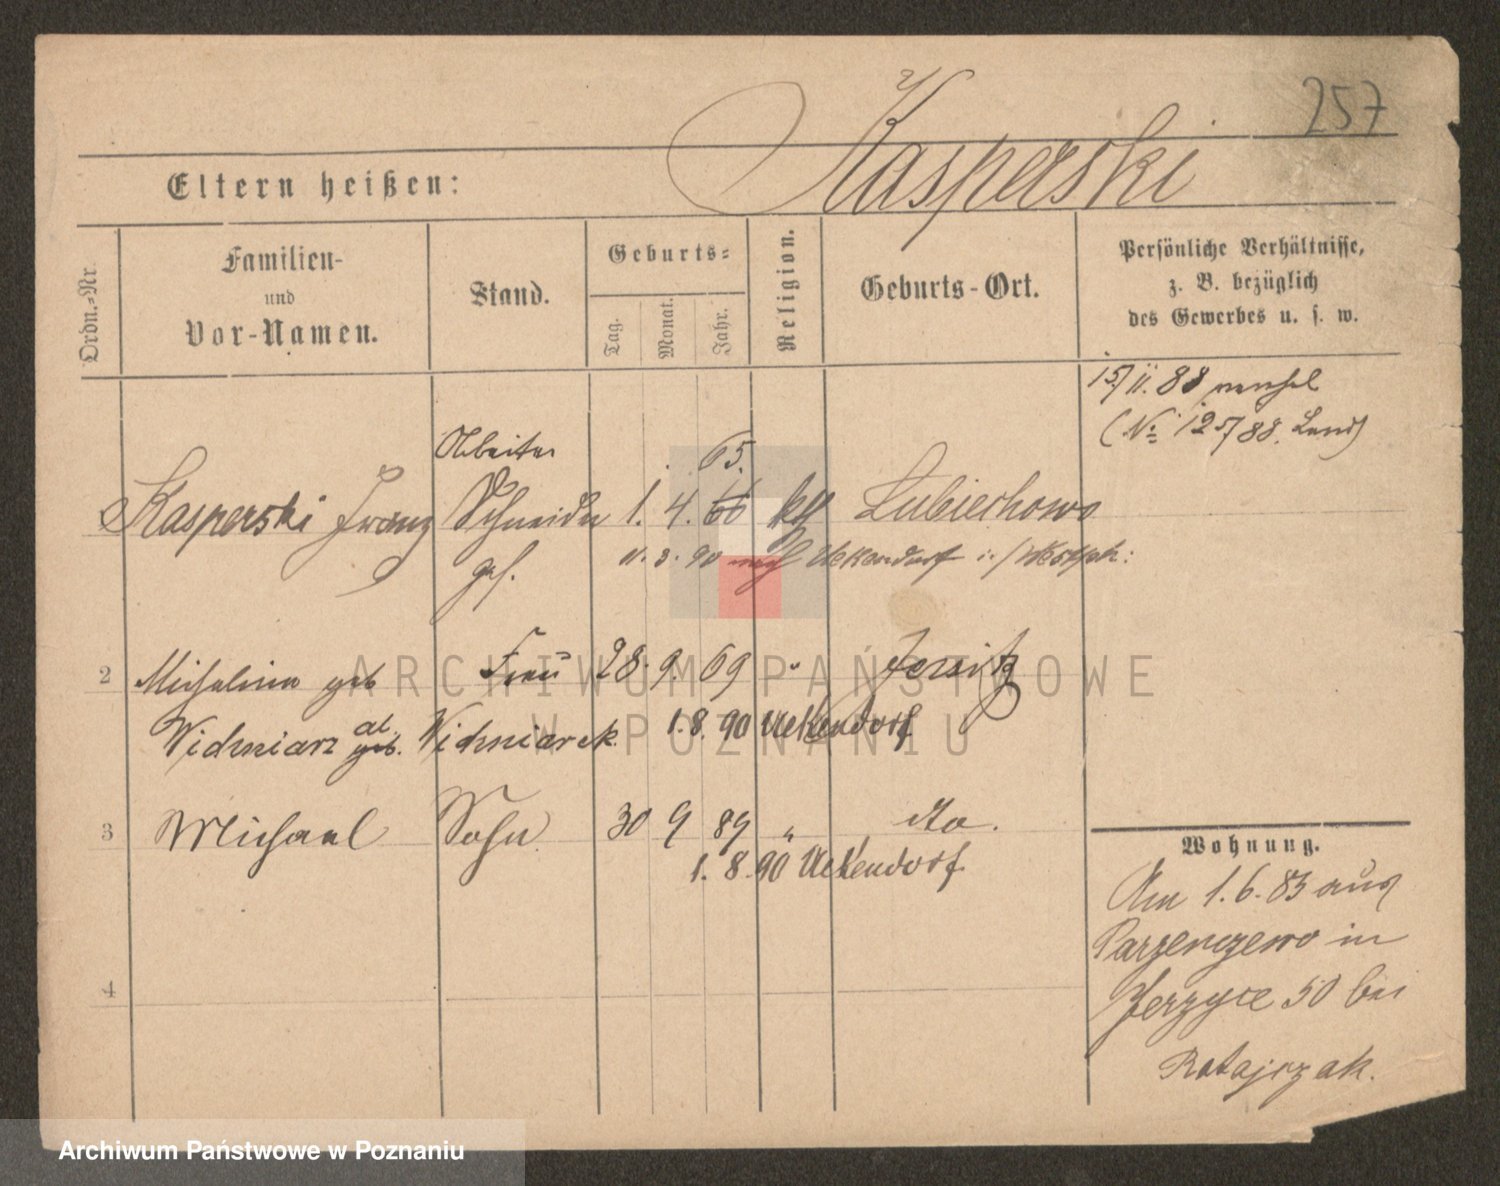 257
Kasperski
Eltern heißen:
Ordn.-Nr.
Familien-
und
Vor-Namen.
Stand.
Geburts-
Tag.
Monat.
Jahr.
Religion.
Geburts-Ort.
Persönliche Verhältnisse,
z. B. bezüglich
des Gewerbes u. s. w.
15/11. 88
(No 125/88. Land)
Arbeiter 65.
1 Kasperski Franz Schneider 1. 4. 66 kth Lubiechowo
ges. 11. 3. 90 nach Uekendorf i./Westph:
2 Michalina geb Frau 28. 9. 69 " Jersitz
Wichniarz al. geb. Wichniarek. 1. 8. 90 Uekendorf
3 Michael Sohn 30 9 89 " dto.
1. 8. 90 Uekendorf.
4
Wohnung.
Am 1. 6. 83 aus
Parzenczewo in
Jerzyce 50 bei
Ratajczak.
ARCHIWUM PAŃSTWOWE
W POZNANIU
Archiwum Państwowe w Poznaniu